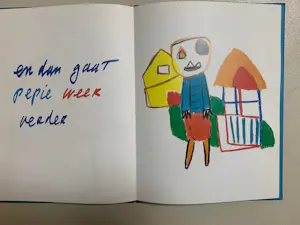 en dan gaat
pepie weer
verder